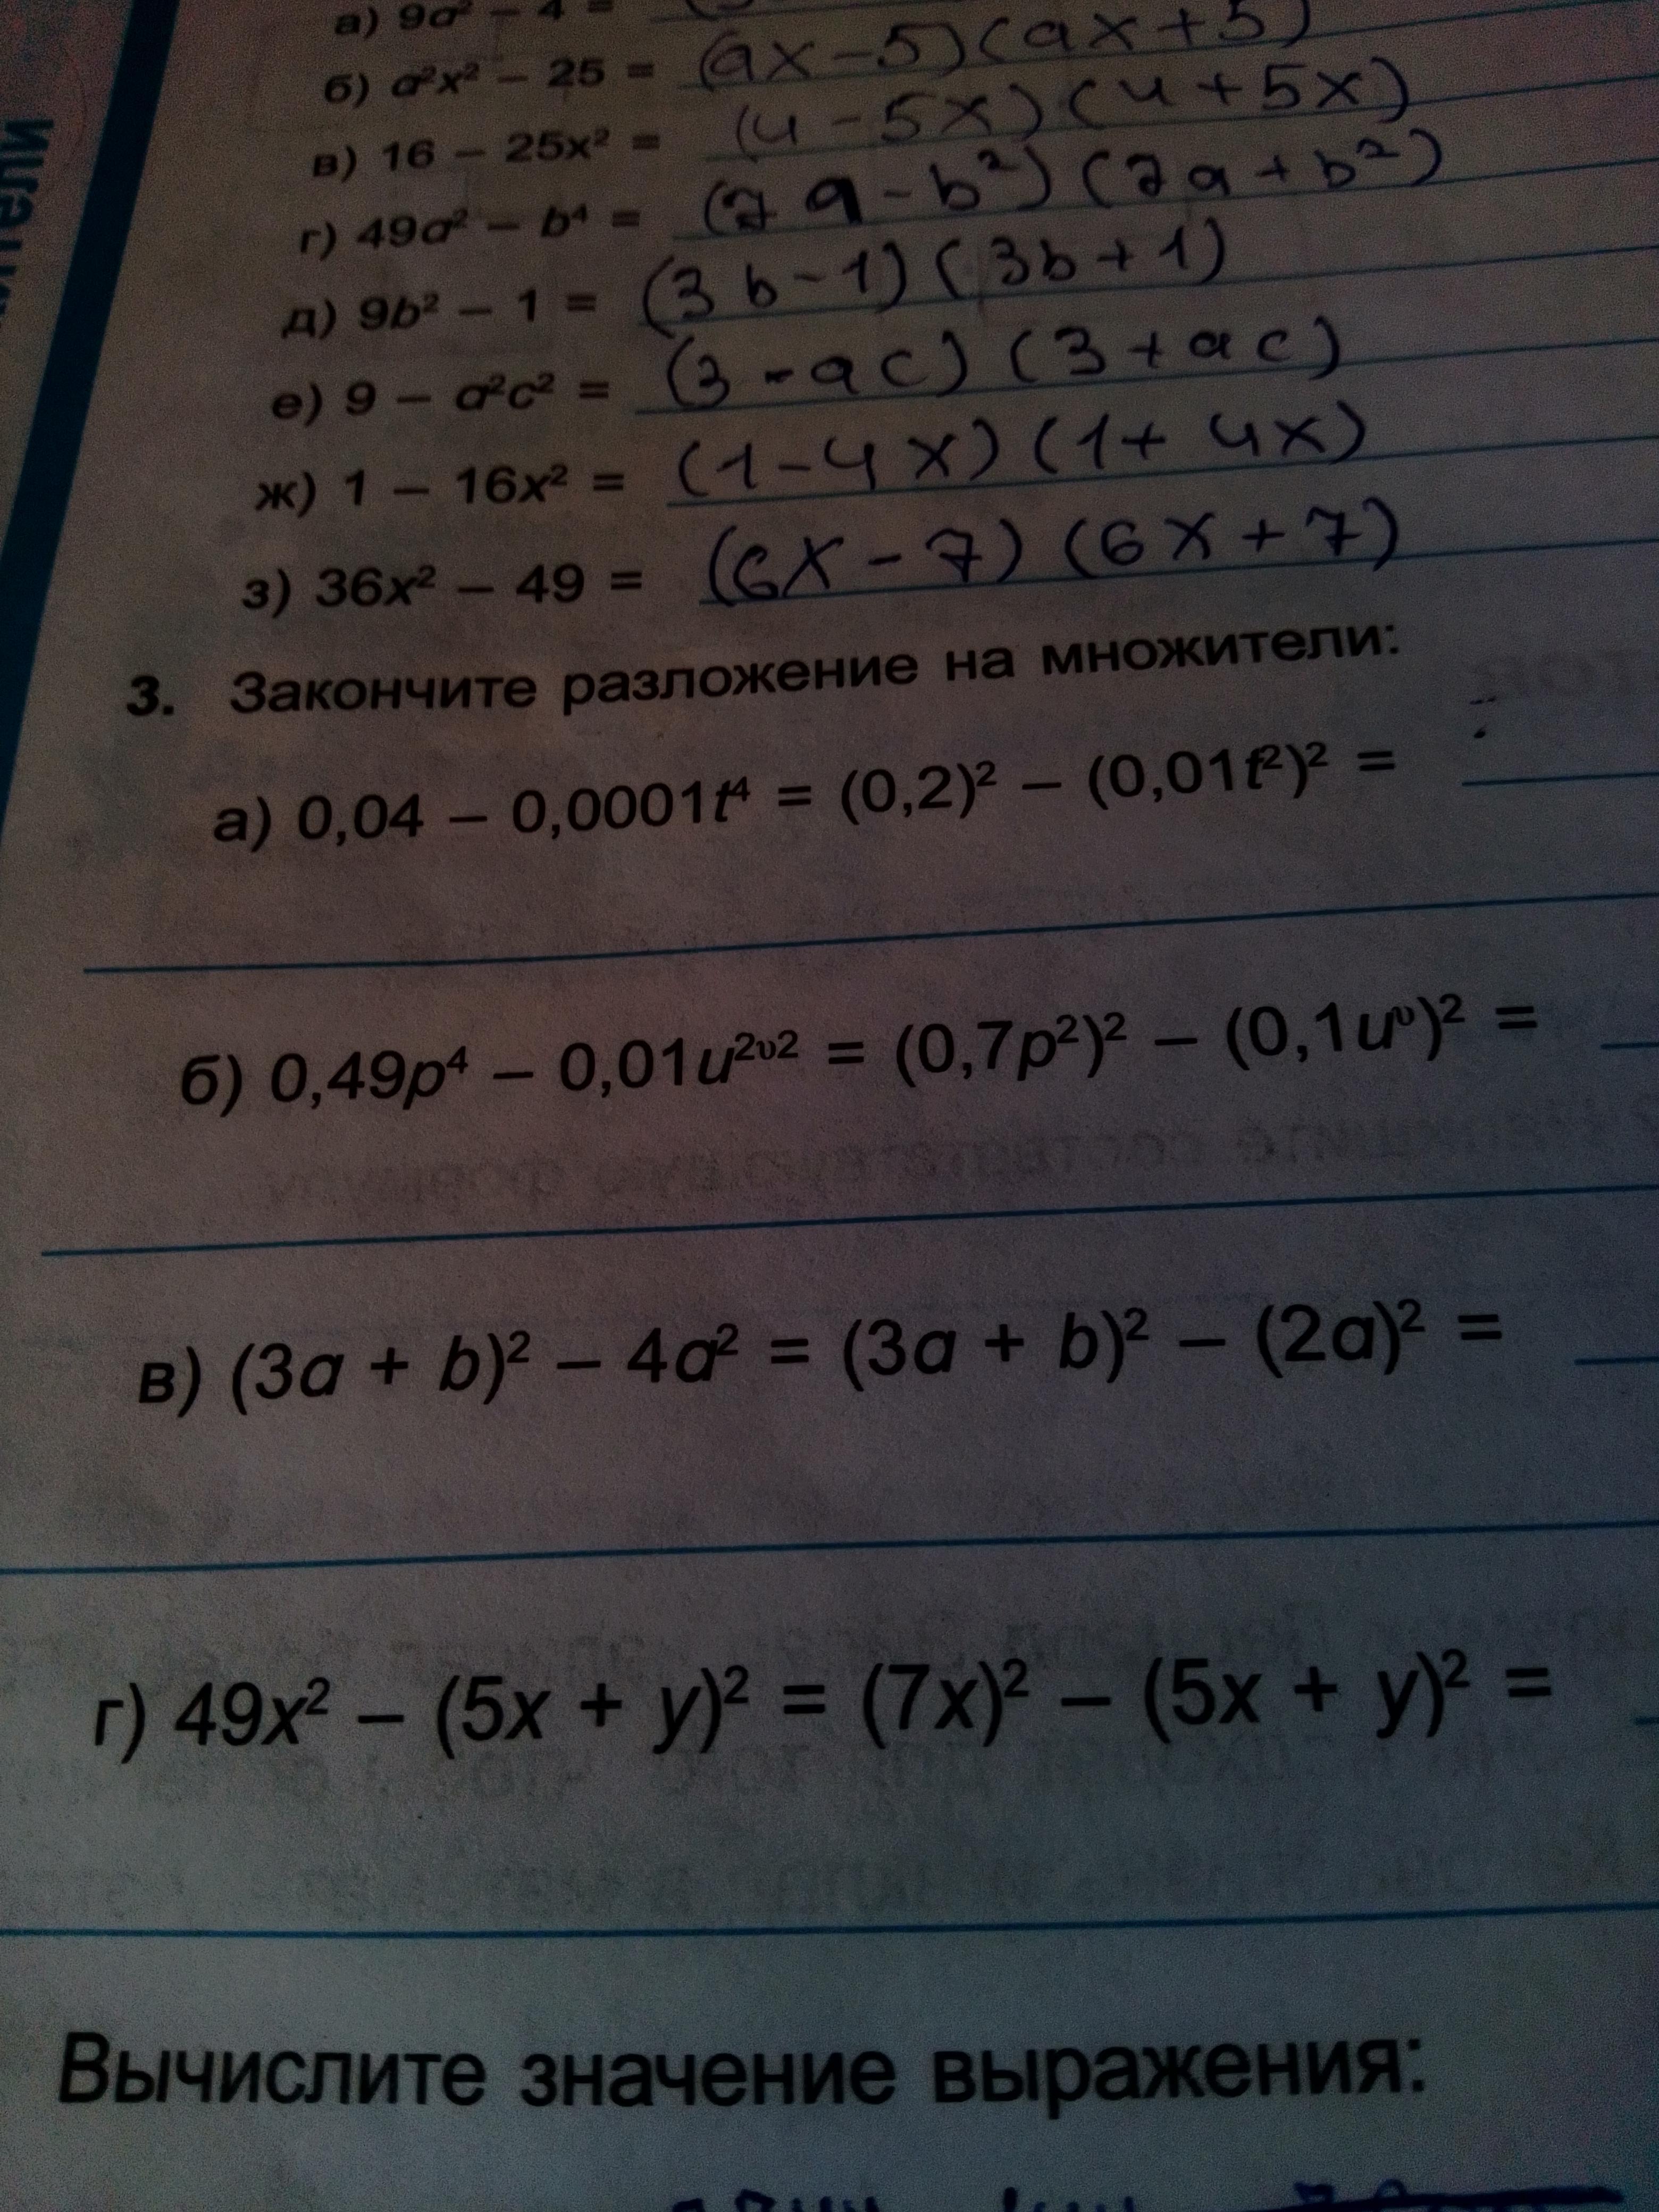 а) 9a² – 4 =
б) a²x² – 25 = (ax – 5)(ax + 5)
в) 16 – 25x² = (4 – 5x)(4 + 5x)
г) 49a² – b⁴ = (7a – b²)(7a + b²)
д) 9b² – 1 = (3b – 1)(3b + 1)
е) 9 – a²c² = (3 – ac)(3 + ac)
ж) 1 – 16x² = (1 – 4x)(1 + 4x)
з) 36x² – 49 = (6x – 7)(6x + 7)
3. Закончите разложение на множители:
а) 0,04 – 0,0001t⁴ = (0,2)² – (0,01t²)² =
б) 0,49p⁴ – 0,01u²ᵛ² = (0,7p²)² – (0,1uᵛ)² =
в) (3a + b)² – 4a² = (3a + b)² – (2a)² =
г) 49x² – (5x + y)² = (7x)² – (5x + y)² =
Вычислите значение выражения: